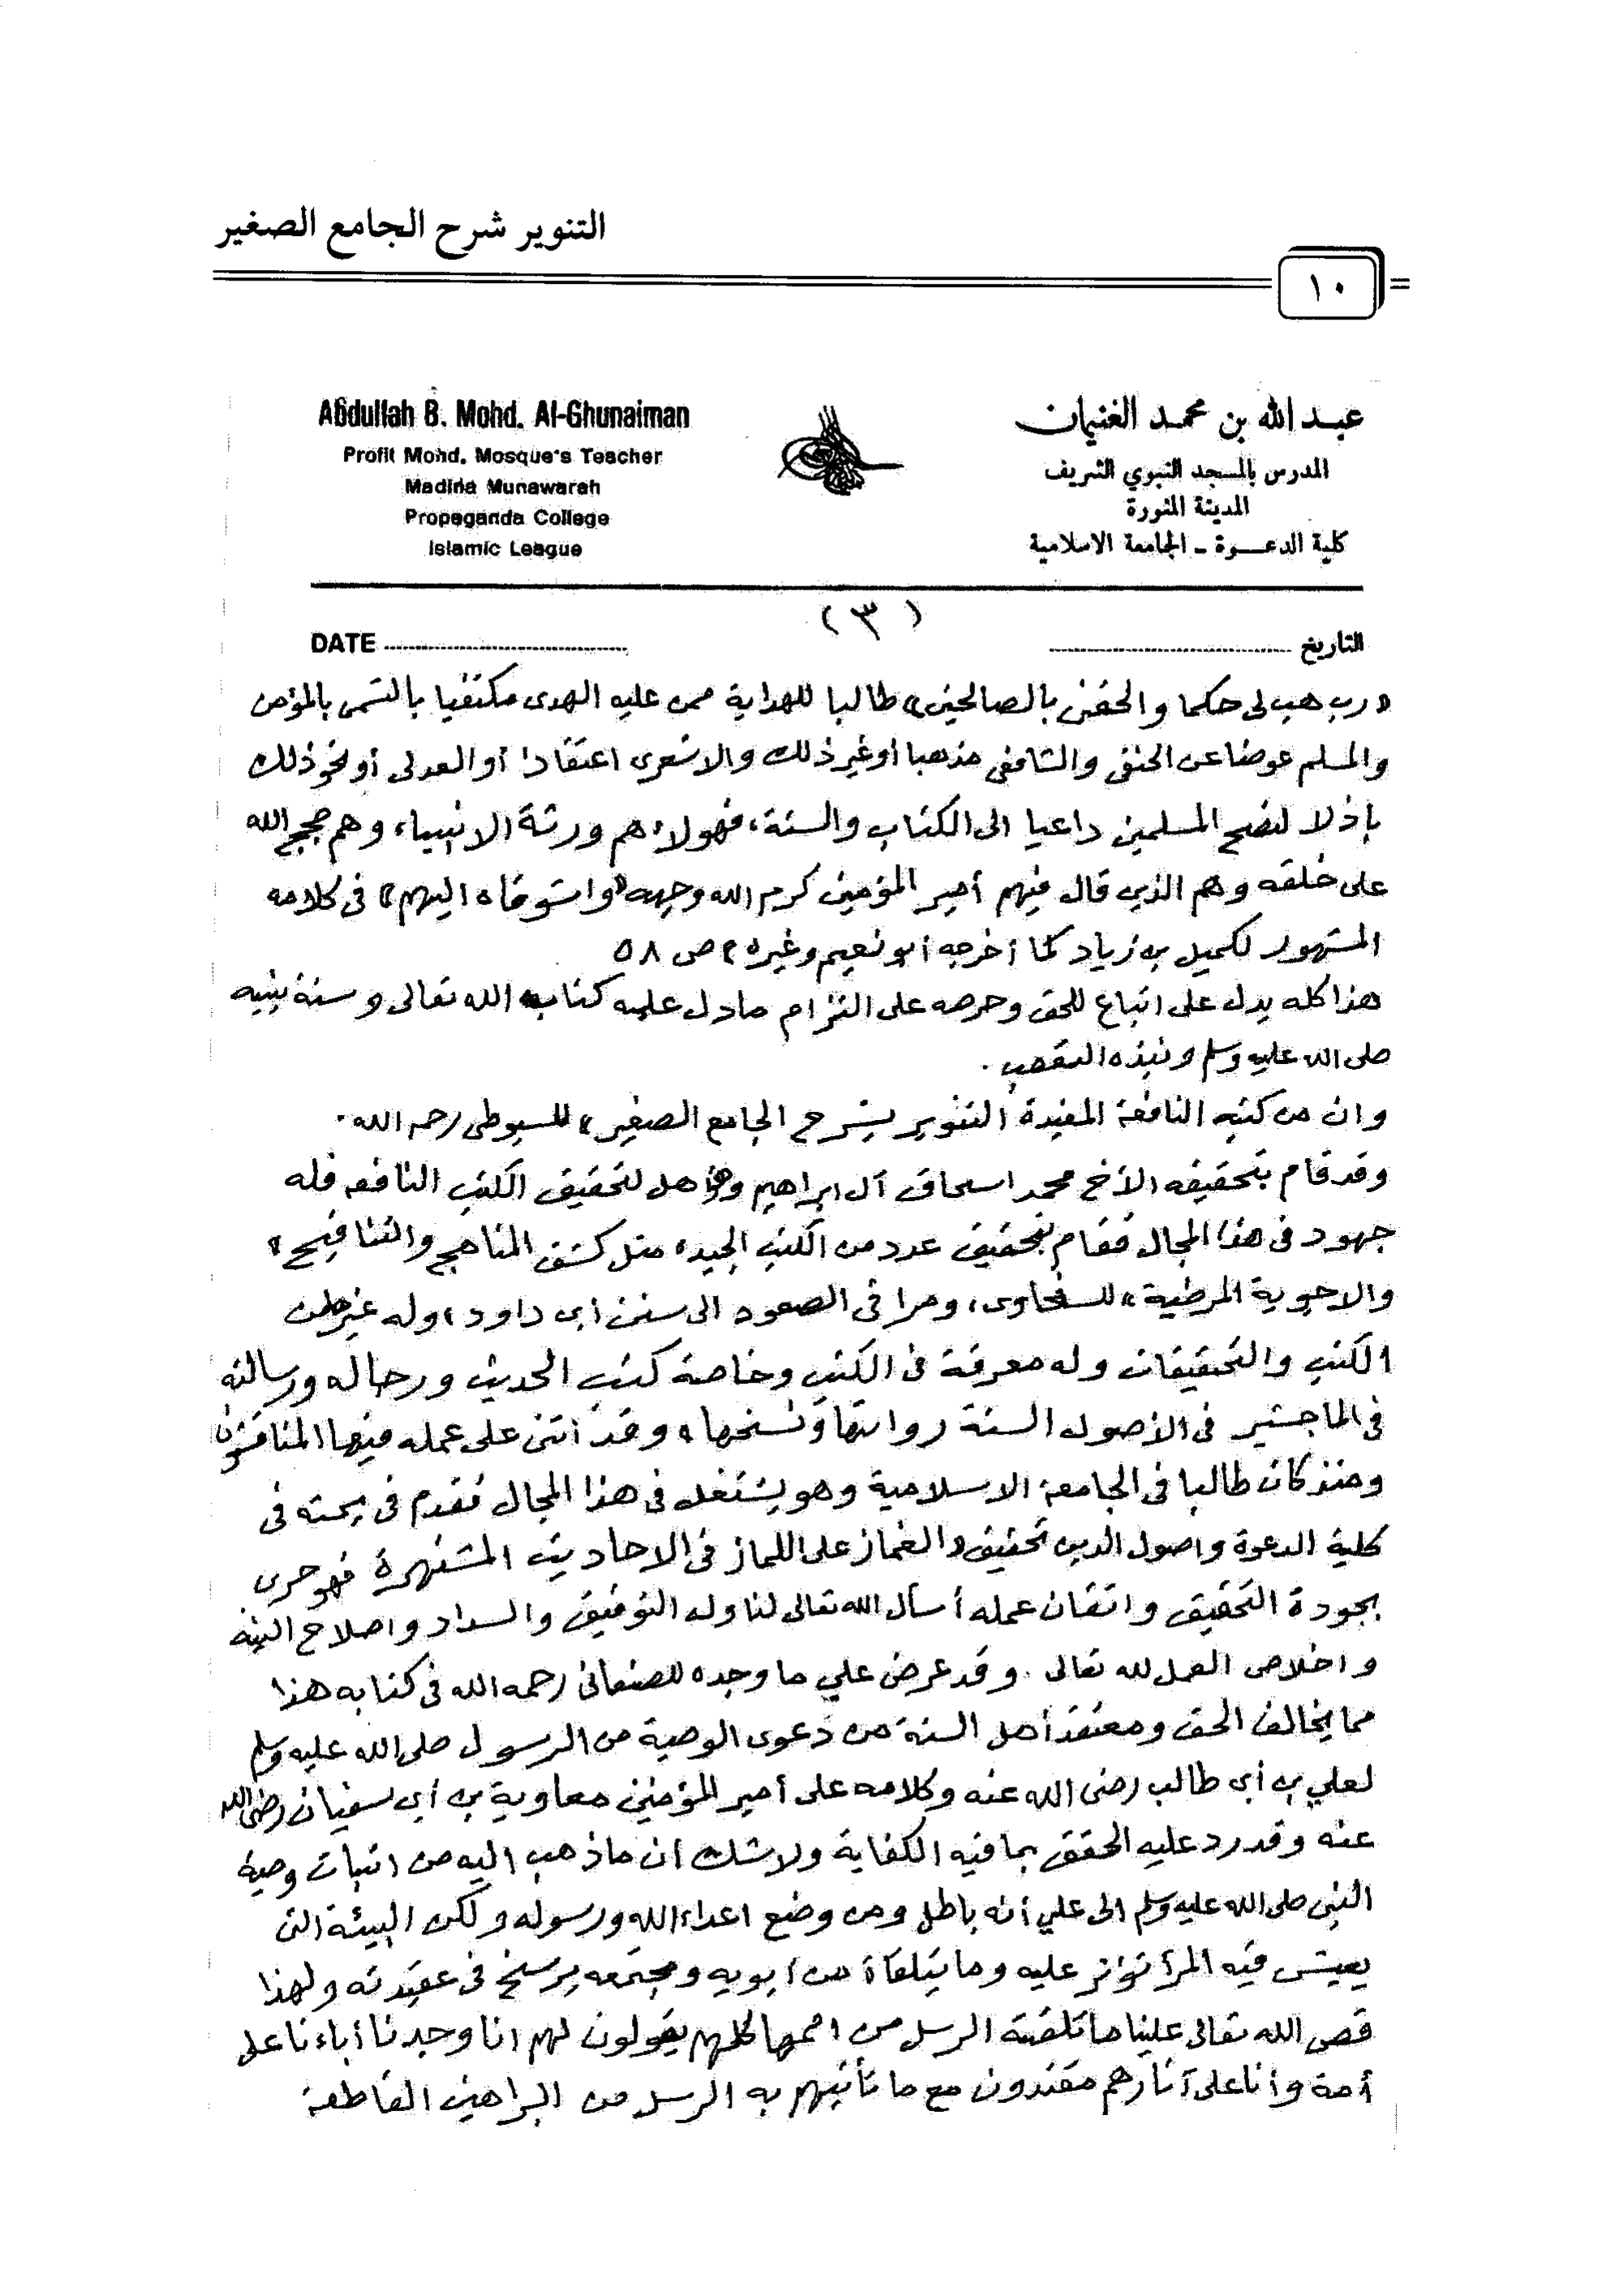 التنوير شرح الجامع الصغير
١٠
عبد الله بن محمد الغنيمان
المدرس بالمسجد النبوي الشريف
المدينة المنورة
كلية الدعوة - الجامعة الاسلامية
Abdullah B. Mohd. Al-Ghunaiman
Profit Mohd. Mosque's Teacher
Madina Munawarah
Propaganda College
Islamic League
(٣)
التاريخ
DATE
«رب هب لي حكما والحقني بالصالحين» طالبا للهداية ممن عليه الهدى مكتفيا بالتسمي بالمؤمن
والمسلم عوضا عن الحنفي والشافعي مذهبا أو غير ذلك والاشعري اعتقادا أو العدلي أو نحو ذلك
باذلا لنصح المسلمين داعيا الى الكتاب والسنة، فهولاء هم ورثة الانبياء، وهم حجج الله
على خلقه وهم الذين قال فيهم أمير المؤمنين كرم الله وجهه «واشوقاه اليهم» في كلامه
المشهور لكميل بن زياد كما أخرجه أبو نعيم وغيره» ص ٥٨
هذا كله يدل على اتباع للحق وحرصه على التزام مادل عليه كتاب الله تعالى وسنة نبيه
صلى الله عليه وسلم ونبذه التعصب.
وان من كتبه النافعة المفيدة «التنوير بشرح الجامع الصغير» للسيوطي رحمه الله.
وقد قام بتحقيقه الأخ محمد اسحاق آل ابراهيم وهو أهل لتحقيق الكتب النافعه فله
جهود في هذا المجال فقام بتحقيق عدد من الكتب الجيده مثل كشف المناهج والتناقيح»
والاجوبة المرضية» للسخاوى، ومراقي الصعود الى سنن أبي داود، وله غيرها من
الكتب والتحقيقات وله معرفة في الكتب وخاصة كتب الحديث ورجاله ورسالته
في الماجستير في الأصول الستة روايتها ونسخها» وقد أثنى على عمله فيها المناقشون
ومنذ كان طالبا في الجامعة الاسلامية وهو يشتغل في هذا المجال فقدم في بحثه في
كلية الدعوة واصول الدين تحقيق «الغماز على اللماز في الاحاديث المشتهرة فهو حرى
بجودة التحقيق واتقان عمله أسأل الله تعالى لنا وله التوفيق والسداد واصلاح النية
واخلاص العمل لله تعالى. وقد عرض علي ما وجده للصنعاني رحمه الله في كتابه هذا
مما يخالف الحق ومعتقد أهل السنة من دعوى الوصية من الرسول صلى الله عليه وسلم
لعلي بن أبي طالب رضى الله عنه وكلامه على أمير المؤمنين معاوية بن أبي سفيان رضي الله
عنه وقد رد عليه المحقق بما فيه الكفاية ولا شك ان ما ذهب اليه من اثبات وصية
النبي صلى الله عليه وسلم الى علي أنه باطل ومن وضع اعداء الله ورسوله ولكن البيئة التي
يعيش فيه المرأ تؤثر عليه وما يتلقاة من أبويه ومجتمعه يرسخ في عقيدته ولهذا
قص الله تعالى علينا ما تلقته الرسل من اممها كلهم يقولون لهم انا وجدنا أباءنا على
أمة وأنا على آثارهم مقتدون مع ما تأتيهم به الرسل من البراهين القاطعة